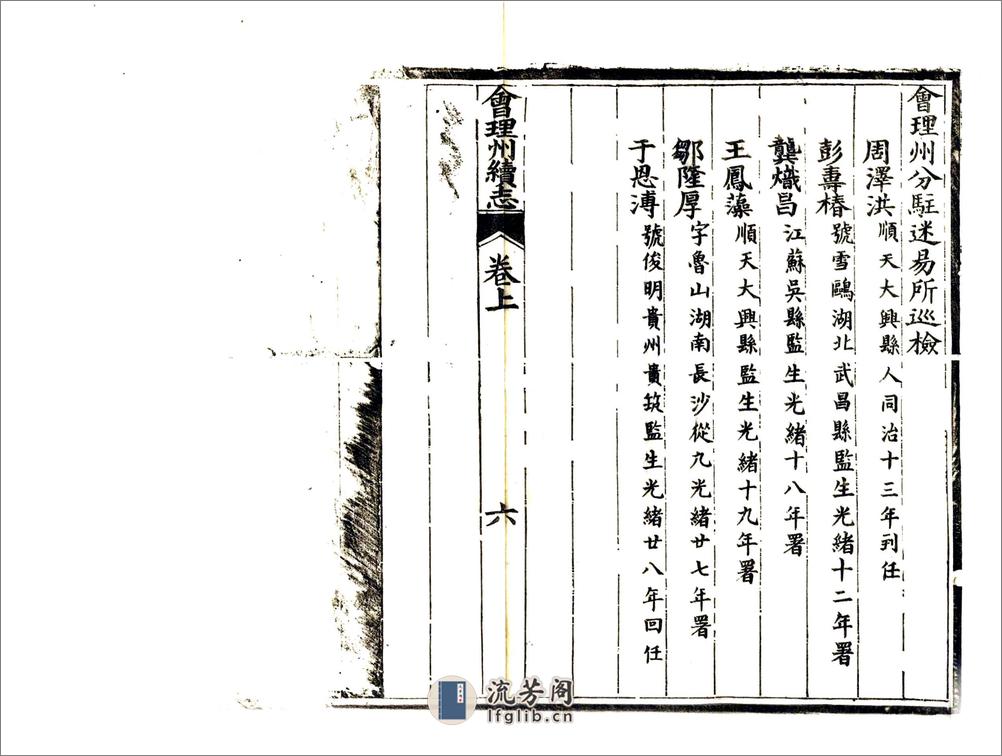 會理州分駐迷易所巡檢
周澤洪順天大興縣人同治十三年到任
彭壽椿號雪鷗湖北武昌縣監生光緒十二年署
龔熾昌江蘇吳縣監生光緒十八年署
王鳳藻順天大興縣監生光緒十九年署
鄒隆厚字魯山湖南長沙從九光緒廿七年署
于恩溥號俊明貴州貴筑監生光緒廿八年回任
會理州續志 卷上 六
流芳阁
lfglib.cn